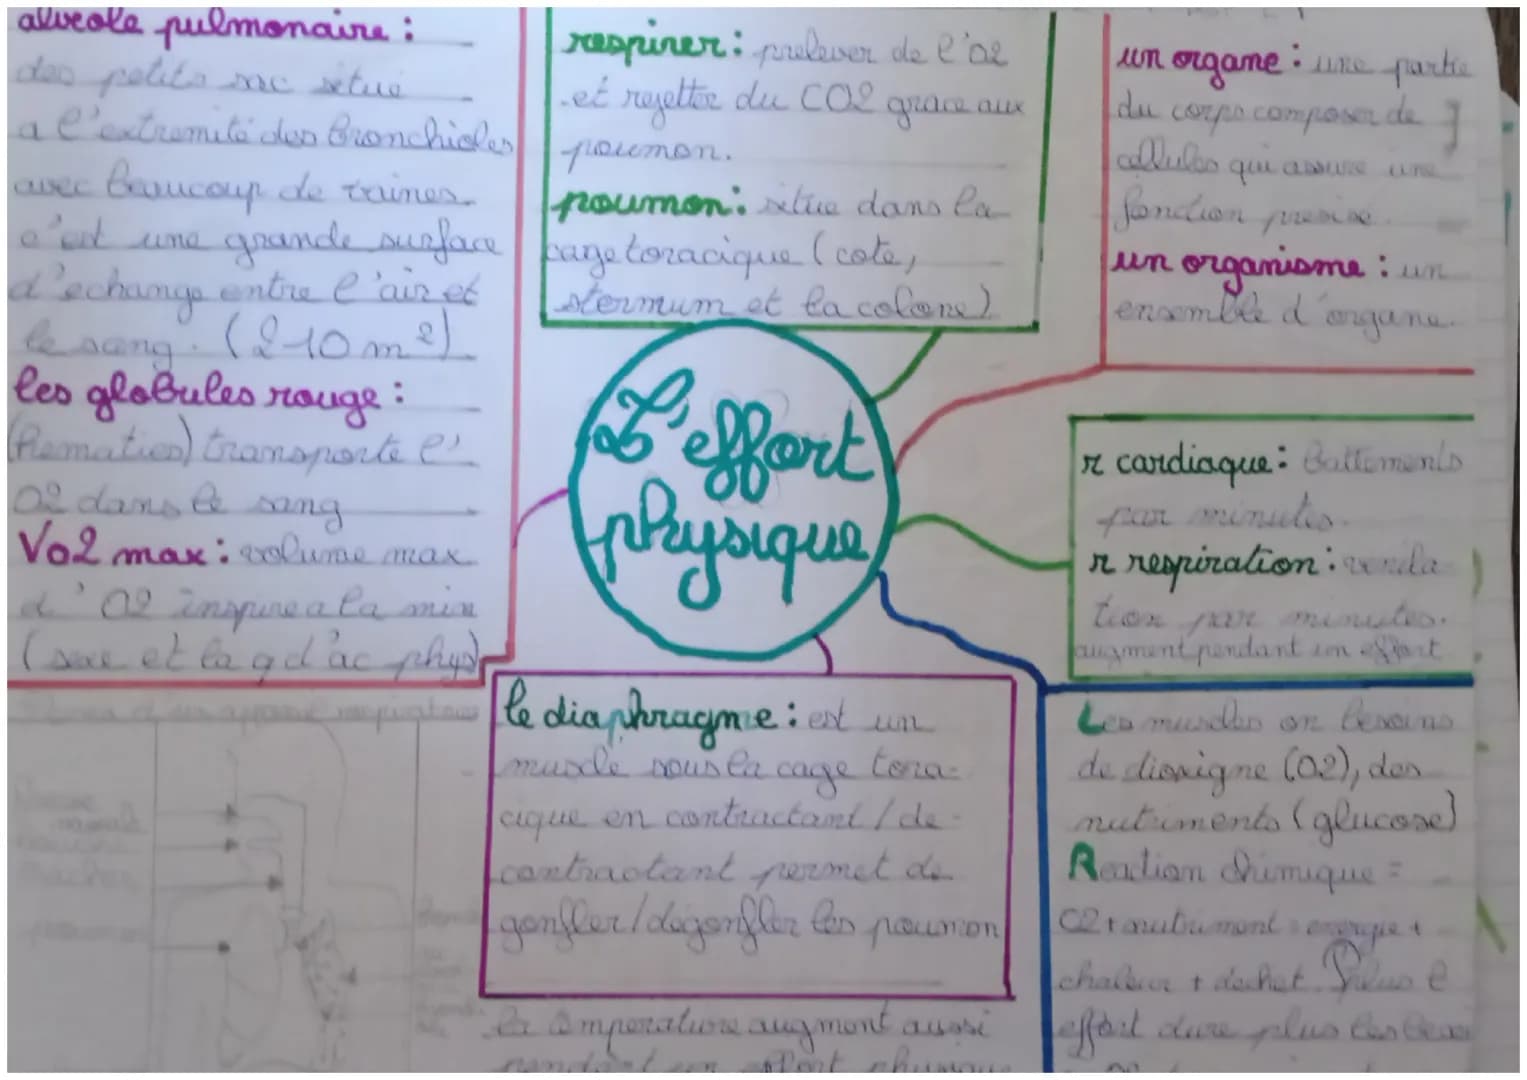 alveole pulmonaire :
des petits sac situe
a l'extremité des bronchioles
avec beaucoup de vaines
c'est une grande surface
d'echange entre l'air et
le sang. (210 m²)
les globules rouge :
(hematies) transporte l'
O2 dans le sang
Vo2 max : volume max
d'O2 inspire a la min
(sexe et la q d'ac phys)
respirer : prelever de l'O2
et rejetter du CO2 grace aux
poumon.
poumon : situe dans la
cage toracique (cote,
sternum et la colone)
un organe : une partie
du corps composer de
cellules qui assure une
fonction precise.
un organisme : un
ensemble d'organe.
L'effort
physique
r cardiaque : Battements
par minutes.
r respiration : venila
tion par minutes.
augment pendant un effort
le diaphragme : est un
muscle sous la cage tora-
cique en contractant / de-
contractant permet de
gonfler / degonfler les poumon
la temperature augment aussi
pendant un effort physique
Les muscles on besoins
de dioxigne (O2), des
nutriments (glucose)
Reaction chimique =
O2 + nutriment = energie +
chaleur + dechet. Plus l
effort dure plus les